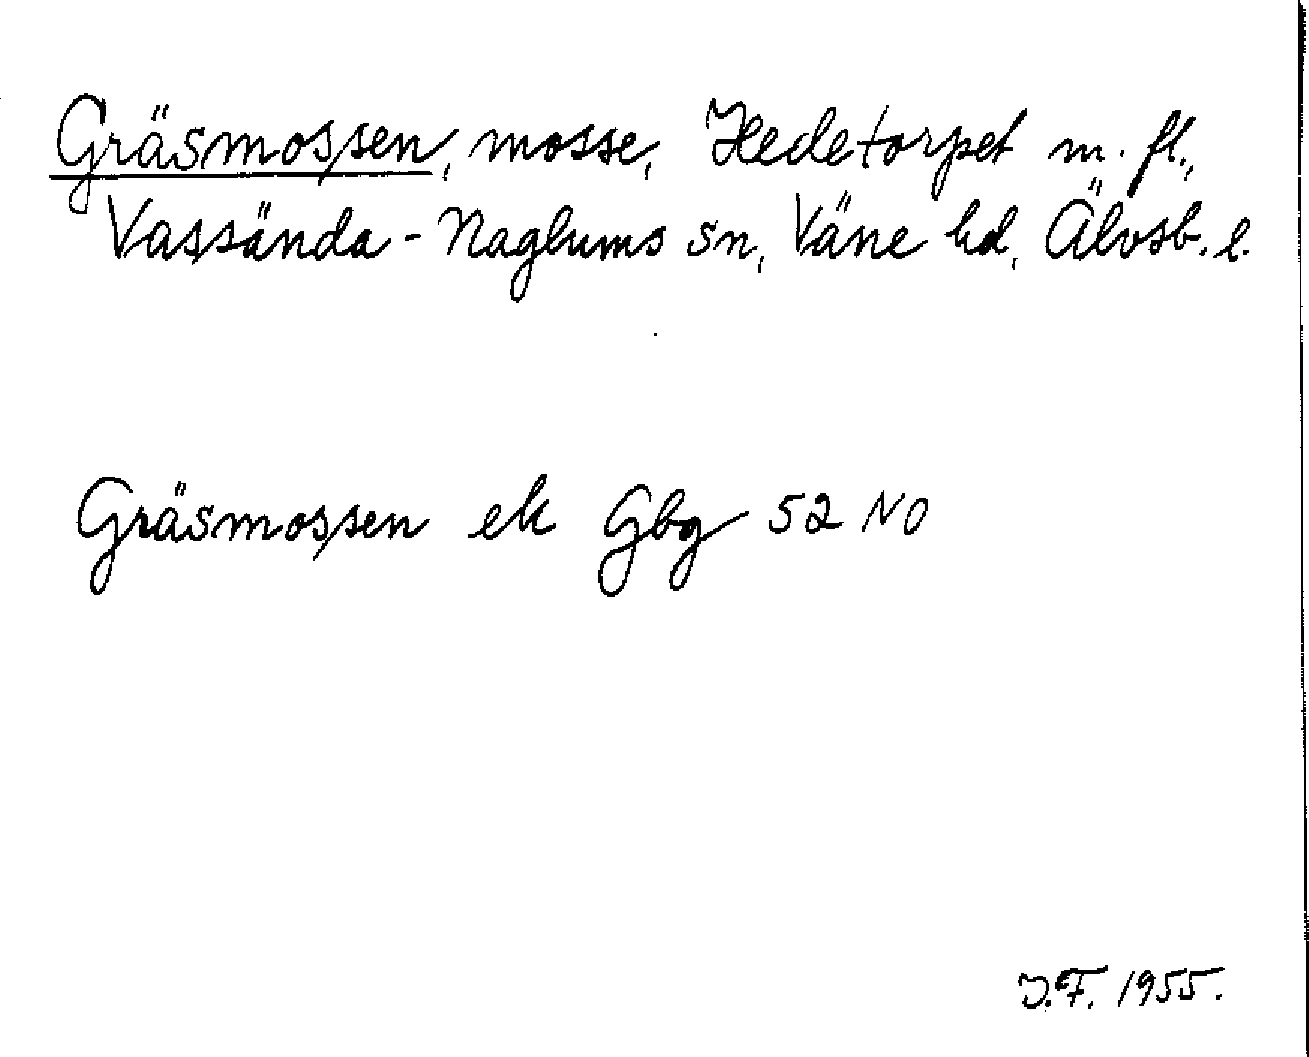 Gräsmossen, mosse, Hedetorpet m. fl.,
Vassända-Naglums sn, Väne hd, Älvsb. l.
Gräsmossen ek Gbg 52 NO
I.F. 1955.